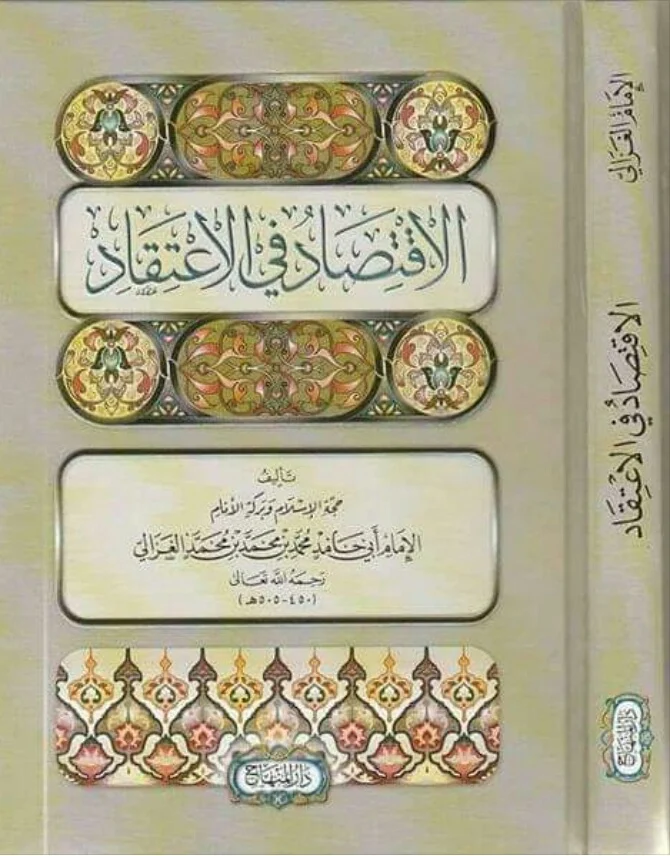 الاقْتِصَادُ في الاعْتِقَادِ
تأليف
حجّة الإسلام وبركة الأنام
الإمام أبي حامد محمّد بن محمّد بن محمّد الغزالي
رحمه الله تعالى
(٤٥٠-٥٠٥هـ)
دار المنهاج
الإمام الغزالي
الاقتصاد في الاعتقاد
دار المنهاج